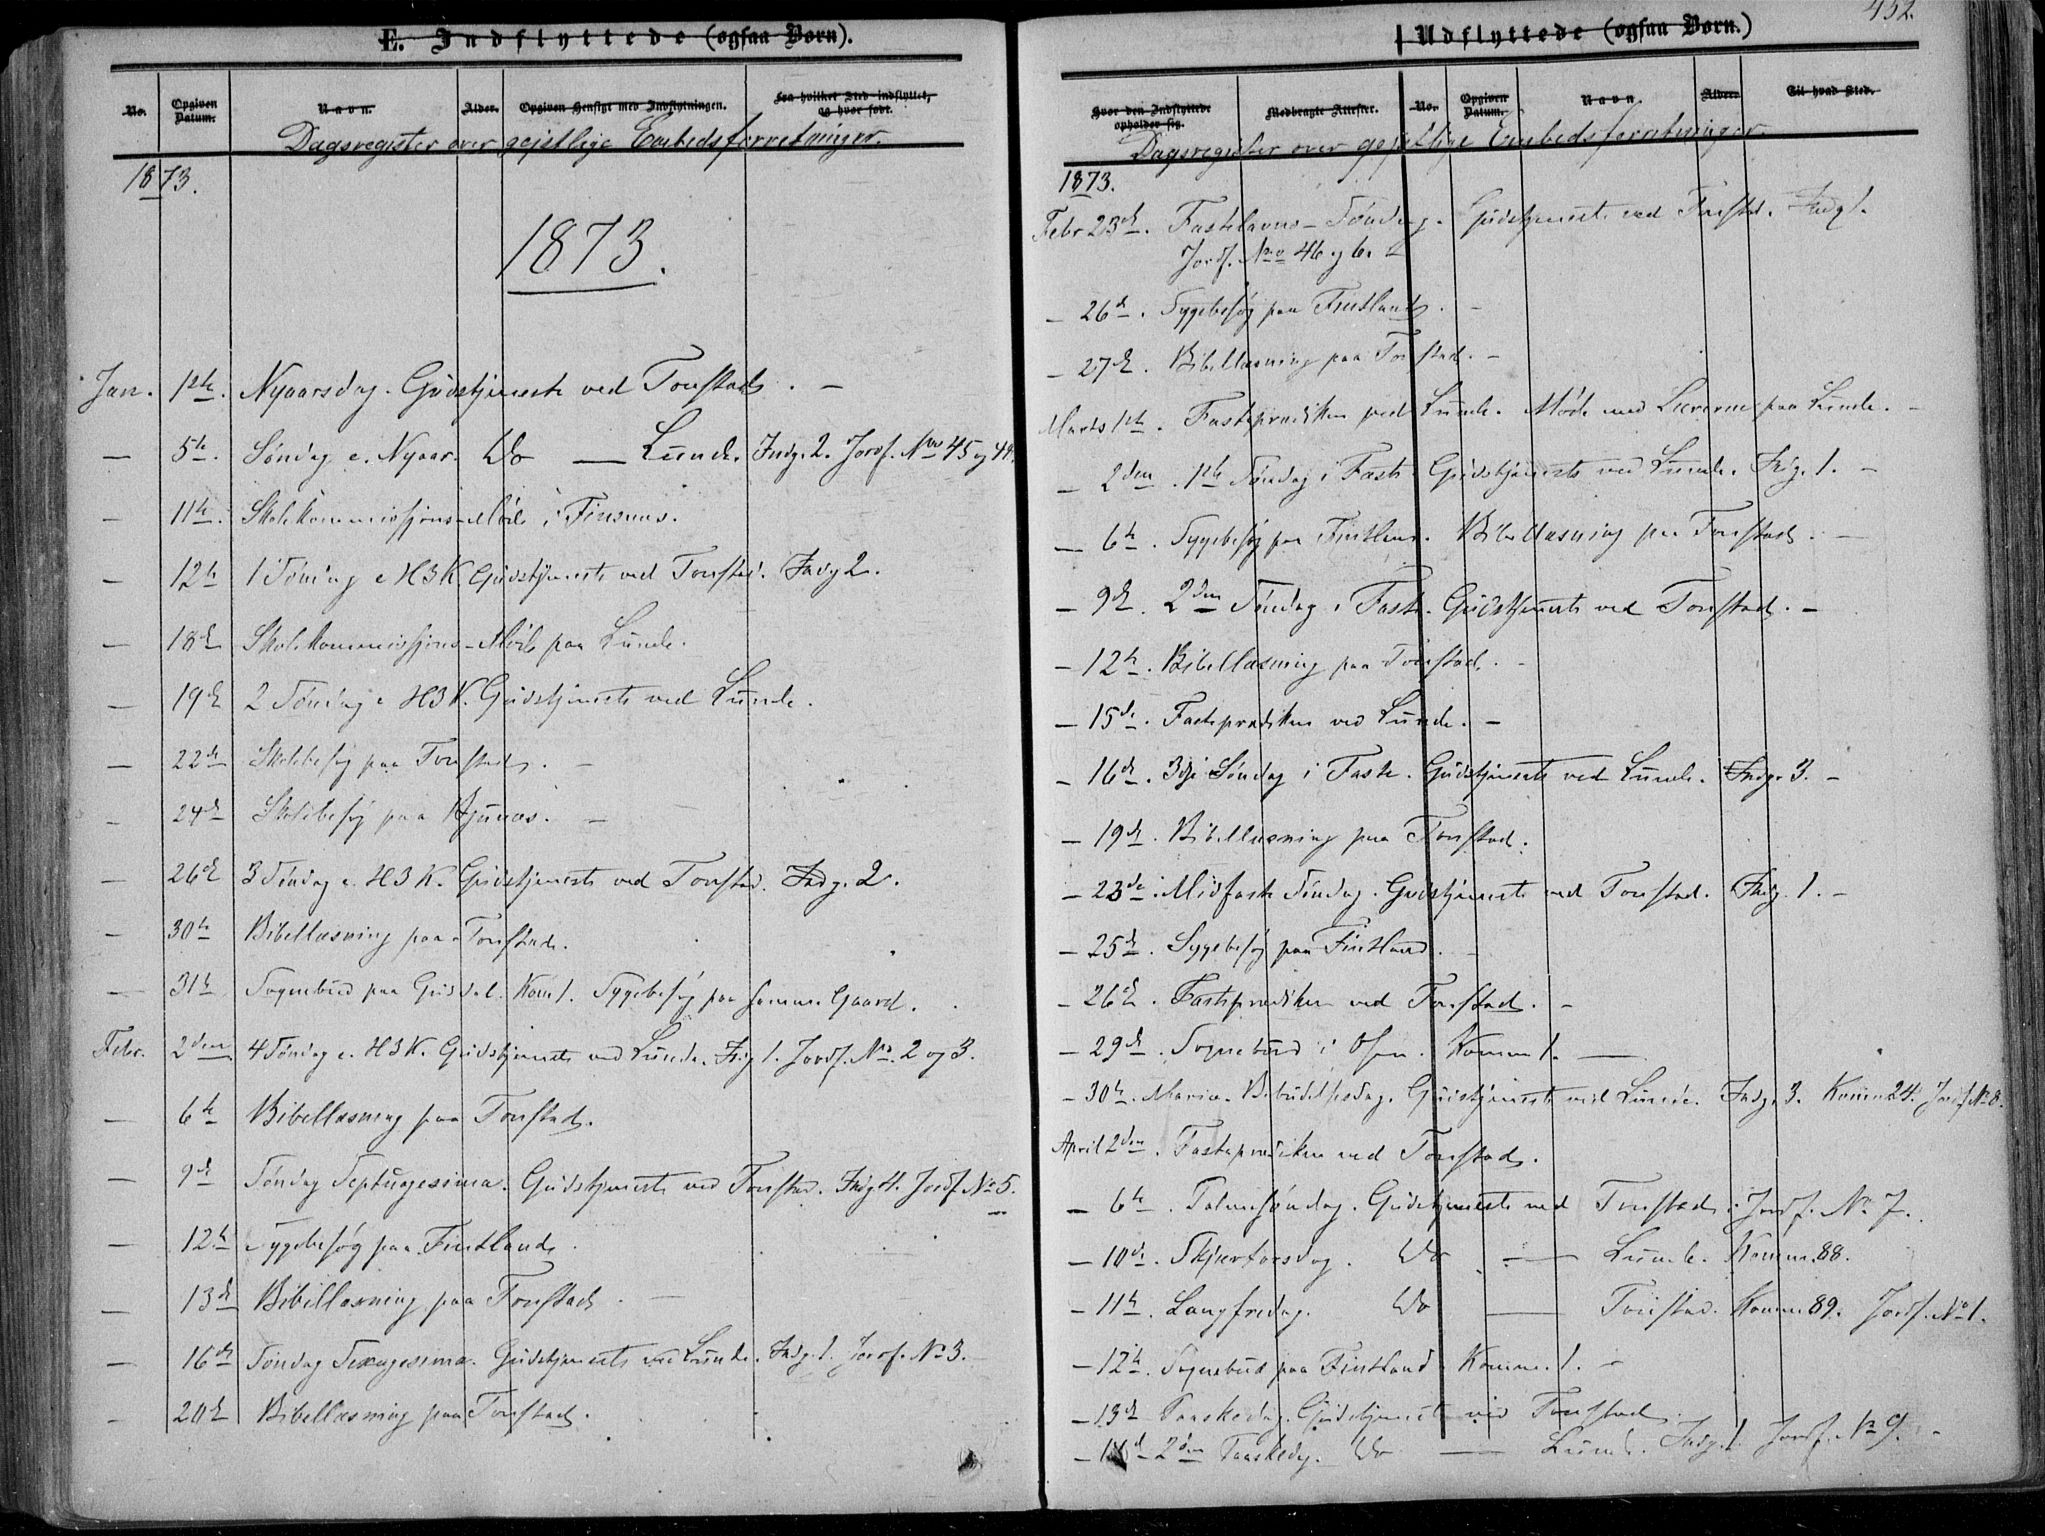 E. Indflyttede (ogsaa Børn).
No.
Opgiven Datum.
Navn.
Alder.
Opgiven Hensigt med Indflytningen.
Fra hvilket Sted indflyttet, og hvor født.
Dagsregister over gejstlige Embedsforretninger.
1873.
1873.
Jan. 1ste. Nyaarsdag. Gudstjeneste ved Tonstad. —
— 5te. Søndag e. Nyaar. Do — Lunde. Indg. 2. Jordf. No 45 og 44.
— 11te. Skolekommissjons-Møde i Finsnæs.
— 12te 1 Søndag e H3K. Gudstjeneste ved Tonstad. Indg 2.
— 18de Skolekommissjons-Møde paa Lunde.
— 19de 2 Søndag e H3K. Gudstjeneste ved Lunde.
— 22de Skolebesøg paa Tonstad. —
— 24de Skolebesøg paa —
— 26de 3 Søndag e. H3K. Gudstjeneste ved Tonstad. Indg. 2.
— 30te Bibellæsning paa Tonstad.
— 31te Sognebud paa Gusdal. Kom 1. Sygebesøg paa samme Gaard.
Febr. 2den 4 Søndag e. H3K. Gudstjeneste ved Lunde. Indg 1. Jordf. No. 2 og 3.
— 6te Bibellæsning paa Tonstad.
— 9de Søndag Septuagesima. Gudstjeneste ved Tonstad. Indg 4. Jordf. No 5.
— 12te Sygebesøg paa Fintland.
— 13de Bibellæsning paa Tonstad —
— 16de Søndag Sexagesima. Gudstjeneste ved Lunde. Indg. 1. Jordf. No 3.
— 20de Bibellæsning paa Tonstad.
452.
Udflyttede (ogsaa Børn.)
Hvor den Indflyttede opholder sig.
Medbragte Attester.
No.
Opgiven Datum.
Navn.
Alder.
Til hvad Sted.
Dagsregister over gejstlige Embedsforretninger.
1873.
Febr 23de. Fastelavns-Søndag. Gudstjeneste ved Tonstad. Indg 1.
Jordf. No 46 og 6.
— 26de. Sygebesøg paa Fintland. —
— 27de. Bibellæsning paa Tonstad. —
Marts 1ste. Fasteprædiken ved Lunde. Møde med Lærerne paa Lunde. —
— 2den. 1ste Søndag i Faste Gudstjeneste ved Lunde. Indg. 1. —
— 6te. Sygebesøg paa Fintland. Bibellæsning paa Tonstad. —
— 9de. 2den Søndag i Faste. Gudstjeneste ved Tonstad. —
— 12te. Bibellæsning paa Tonstad. —
— 15de. Fasteprædiken ved Lunde. —
— 16de. 3dje Søndag i Faste. Gudstjeneste ved Lunde. Indg. 3. —
— 19de. Bibellæsning paa Tonstad.
— 23de. Midfaste Søndag. Gudstjeneste ved Tonstad. Indg. 1. —
— 25de. Sygebesøg paa Fintland. —
— 26de. Fasteprædiken ved Tonstad. —
— 29de. Sognebud i Osen. Komm 1. —
— 30te. Mariæ Bebudelsesdag. Gudstjeneste ved Lunde. Indg. 3. Komm 24. Jordf No 8.
April 2den. Fasteprædiken ved Tonstad.
— 6te. Palmesøndag. Gudstjeneste ved Tonstad. Jordf. No 7.
— 10de. Skjærtorsdag. Do — Lunde. Komm. 88.
— 11te. Langfredag. Do — Tonstad. Komm. 89. Jordf. No 1.
— 12te. Sognebud paa Fintland. Komm. 1. —
— 13de Paaskedag. Gudstjeneste ved Tonstad
— 14de 2den Paaskedag. Do — Lunde. Indg. 1. Jordf. No 9. —